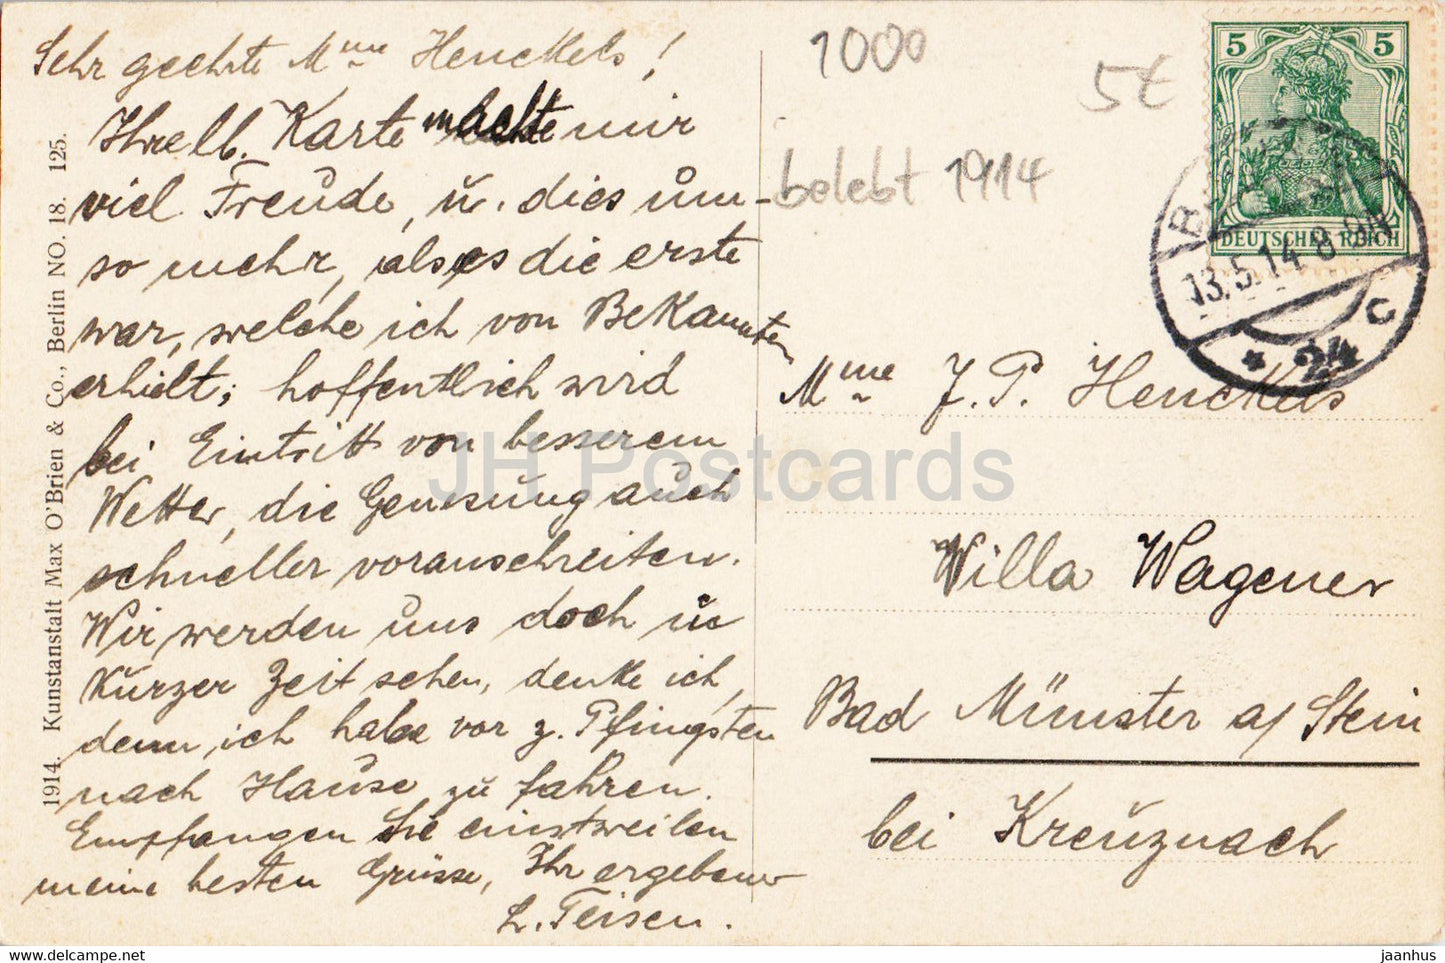 Sehr geehrte Mme Henckels!
Ihre lb. Karte machte mir
viel Freude, u. dies um-
so mehr, als es die erste
war, welche ich von Bekannten
erhielt; hoffentlich wird
bei Eintritt von besserem
Wetter, die Genesung auch
schneller voranschreiten.
Wir werden uns doch in
kurzer Zeit sehen, denke ich,
denn ich habe vor z. Pfingsten
nach Hause zu fahren.
Empfangen Sie einstweilen
meine besten Grüsse, Ihr ergebener
L. Teisen.
1914. Kunstanstalt Max O'Brien & Co., Berlin NO. 18. 125.
1000
5€
belebt 1914
5 5
DEUTSCHES REICH
13.5.14. 8-9N
* 24 c
Mme J. P. Henckels
Willa Wagener
Bad Münster a/ Stein
bei Kreuznach
JH Postcards
https://www.delcampe.net
jaanhus